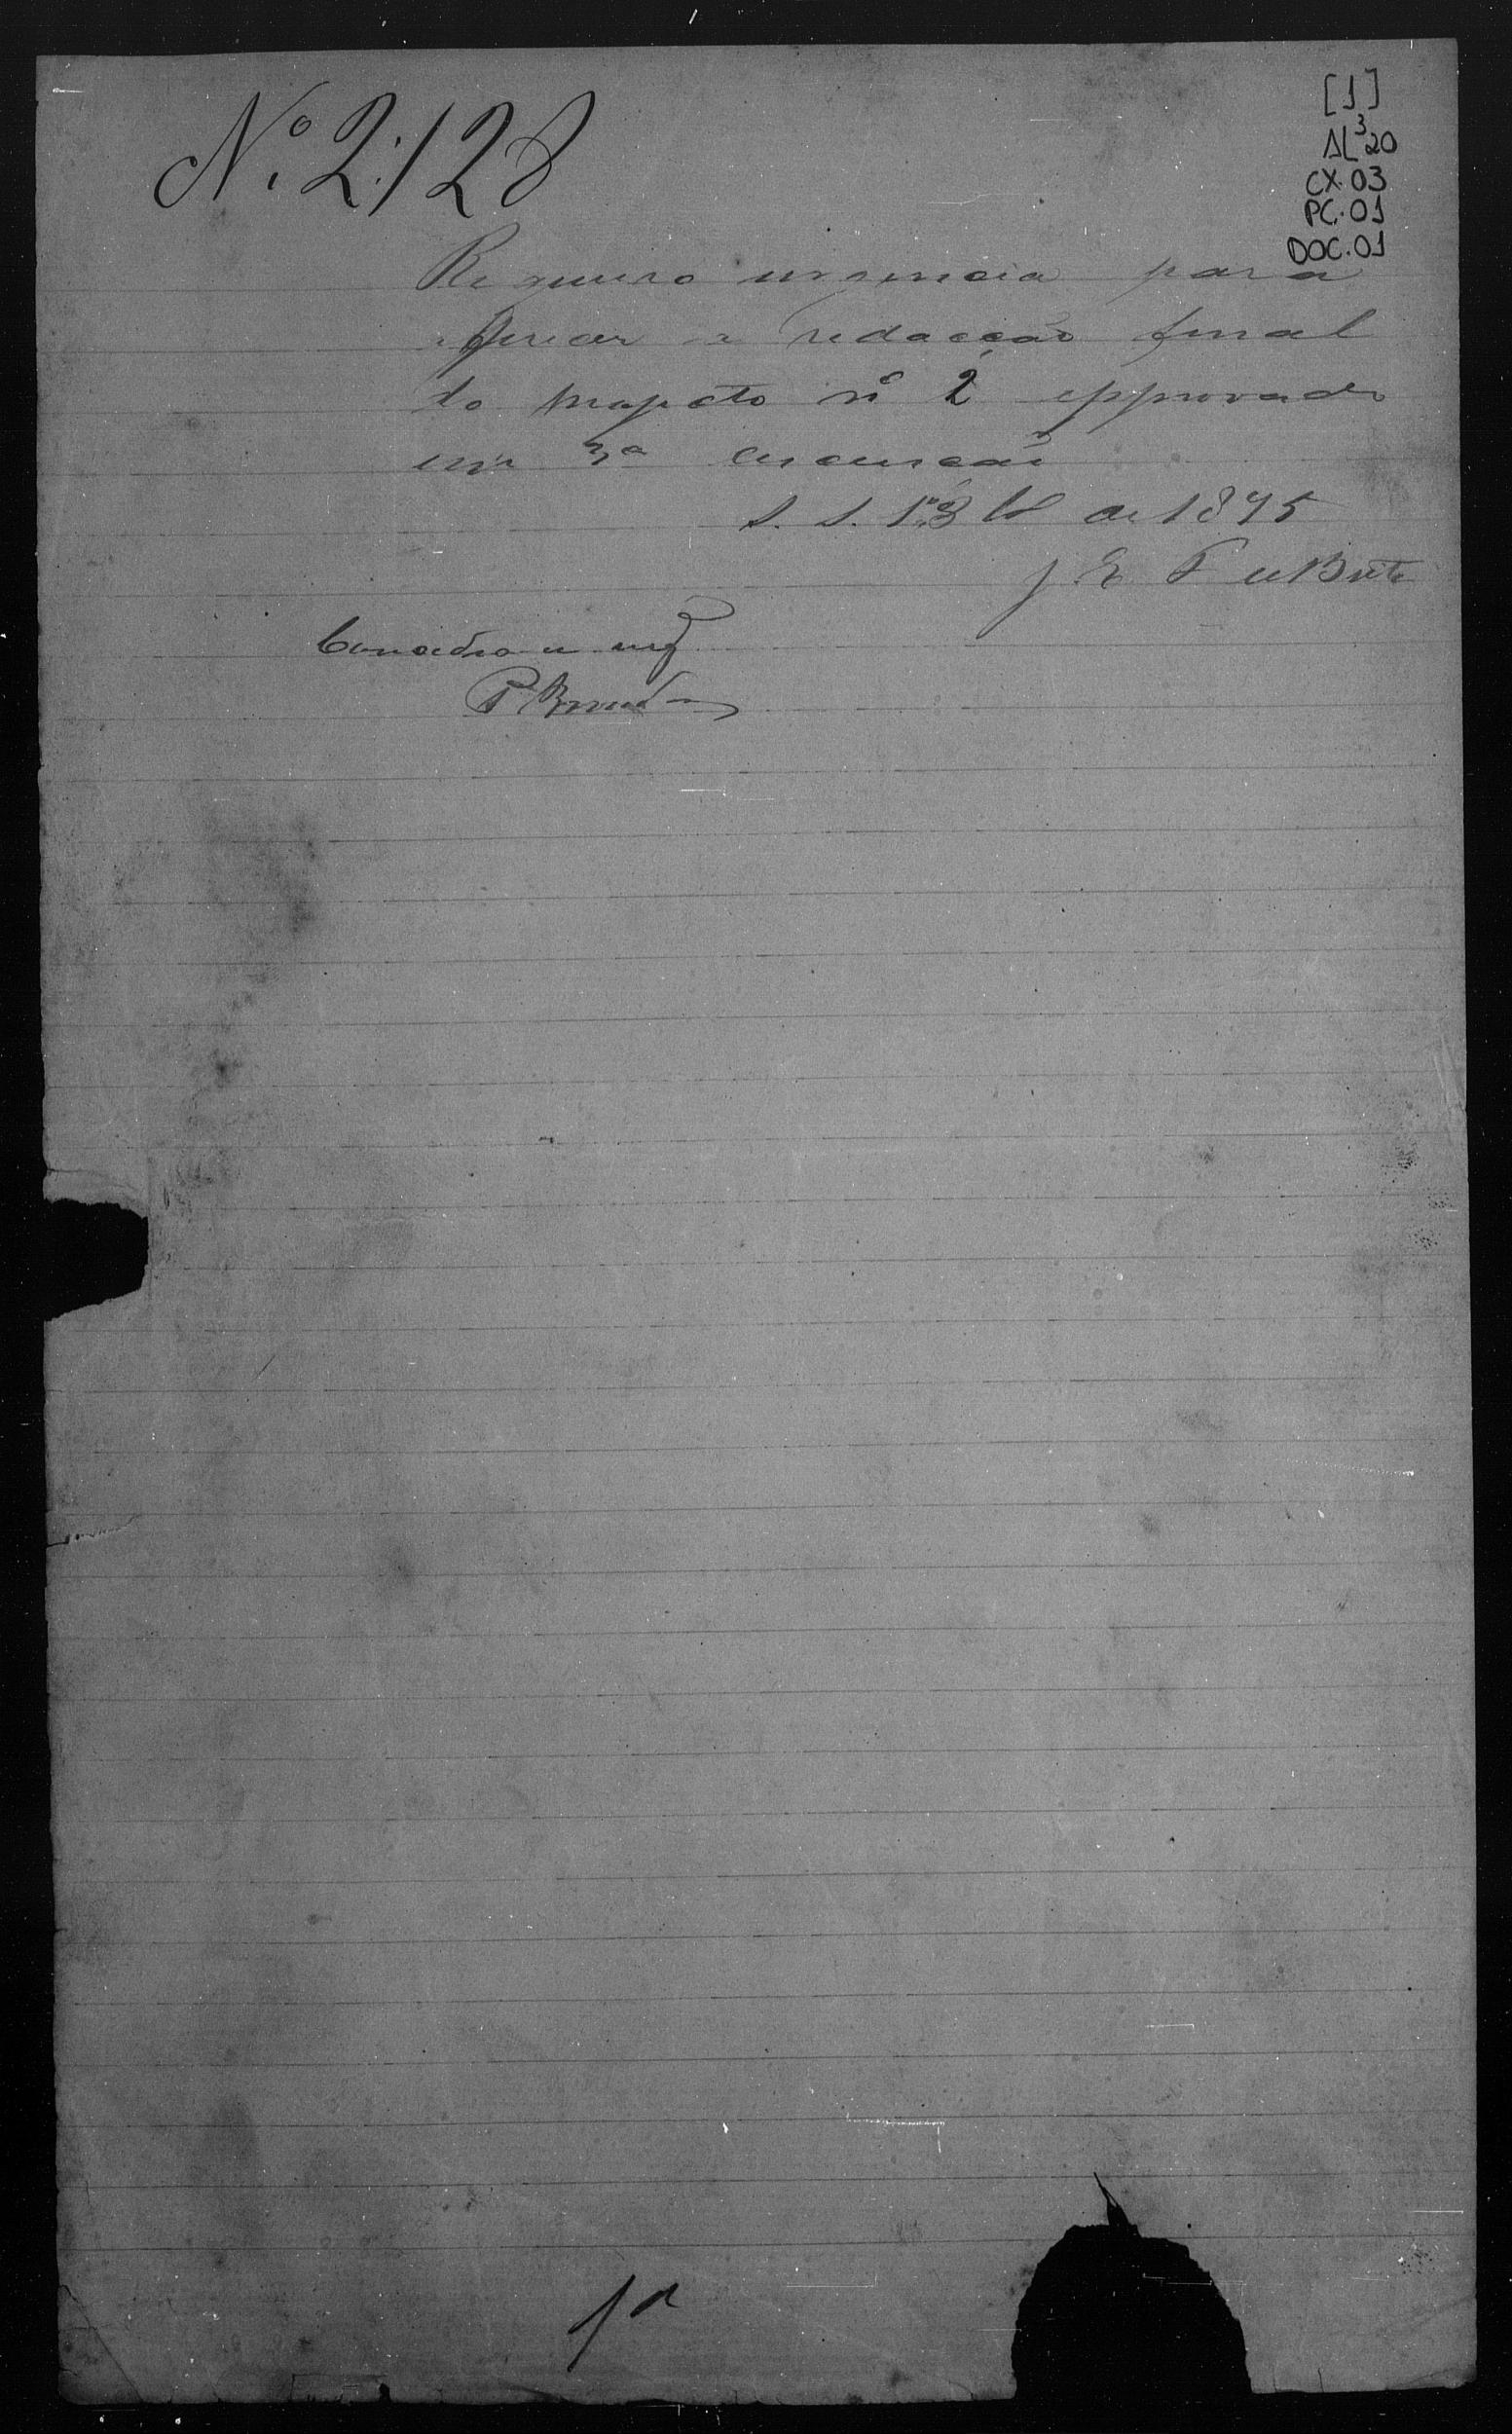 Nº 2:128
[1]
AL³20
CX.03
PC.01
DOC.01
Requeiro urgencia para
a redacção final
do projecto nº 2 approvado
em 3ª discussão
S. S. de 1895
J. E. de Brito
Concedeo-se urg
1ª